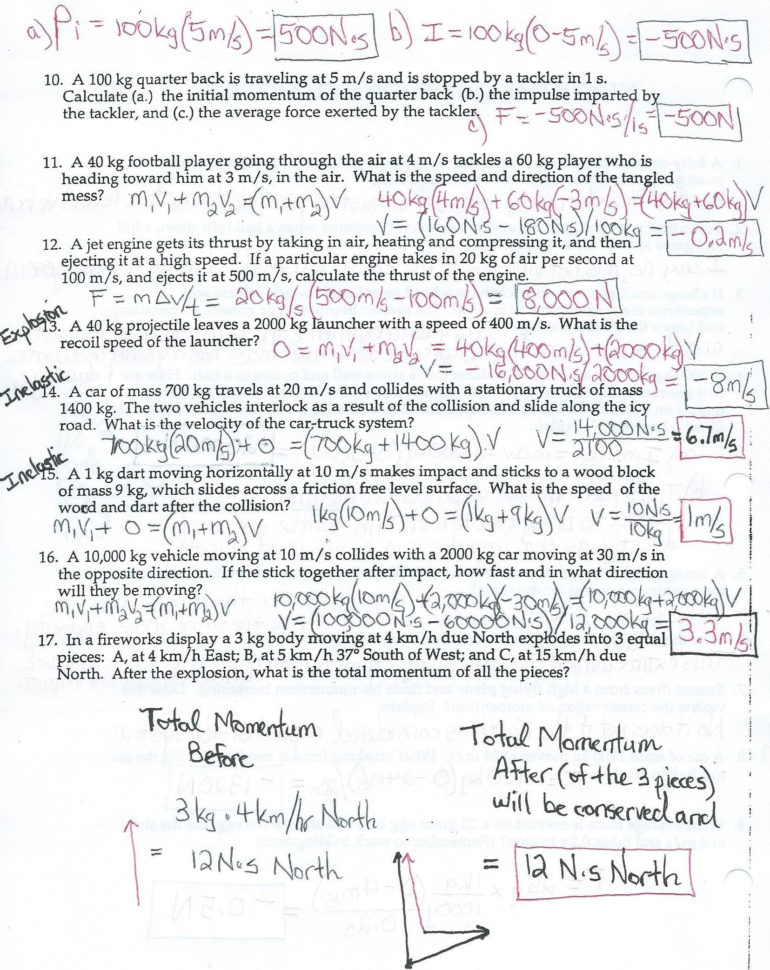 a) Pi = 100kg(5m/s) = 500N·s b) I = 100kg(0-5m/s) = -500N·s
10. A 100 kg quarter back is traveling at 5 m/s and is stopped by a tackler in 1 s.
Calculate (a.) the initial momentum of the quarter back (b.) the impulse imparted by
the tackler, and (c.) the average force exerted by the tackler. c) F = -500N·s/1s = -500N
11. A 40 kg football player going through the air at 4 m/s tackles a 60 kg player who is
heading toward him at 3 m/s, in the air. What is the speed and direction of the tangled
mess? m₁V₁ + m₂V₂ = (m₁+m₂)V 40kg(4m/s) + 60kg(-3m/s) = (40kg+60kg)V
V = (160N·s - 180N·s)/100kg = -0.2m/s
12. A jet engine gets its thrust by taking in air, heating and compressing it, and then
ejecting it at a high speed. If a particular engine takes in 20 kg of air per second at
100 m/s, and ejects it at 500 m/s, calculate the thrust of the engine.
F = mΔv/t = 20kg/s(500m/s-100m/s) = 8,000N
Explosion
13. A 40 kg projectile leaves a 2000 kg launcher with a speed of 400 m/s. What is the
recoil speed of the launcher? 0 = m₁V₁ + m₂V₂ = 40kg(400m/s)+(2000kg)V
V = 16,000N·s/2000kg = -8m/s
Inelastic
14. A car of mass 700 kg travels at 20 m/s and collides with a stationary truck of mass
1400 kg. The two vehicles interlock as a result of the collision and slide along the icy
road. What is the velocity of the car-truck system?
700kg(20m/s)+0 = (700kg+1400kg)·V V = 14,000N·s/2100 = 6.7m/s
Inelastic
15. A 1 kg dart moving horizontally at 10 m/s makes impact and sticks to a wood block
of mass 9 kg, which slides across a friction free level surface. What is the speed of the
wood and dart after the collision? 1kg(10m/s)+0 = (1kg+9kg)V V = 10N·s/10kg = 1m/s
m₁V₁ + 0 = (m₁+m₂)V
16. A 10,000 kg vehicle moving at 10 m/s collides with a 2000 kg car moving at 30 m/s in
the opposite direction. If the stick together after impact, how fast and in what direction
will they be moving?
m₁V₁+m₂V₂=(m₁+m₂)V 10,000kg(10m/s)+(2,000kg)(-30m/s)=(10,000kg+2000kg)V
V=(100000N·s-60000N·s)/12,000kg = 3.3m/s
17. In a fireworks display a 3 kg body moving at 4 km/h due North explodes into 3 equal
pieces: A, at 4 km/h East; B, at 5 km/h 37° South of West; and C, at 15 km/h due
North. After the explosion, what is the total momentum of all the pieces?
Total Momentum
Before
3kg · 4km/hr North
= 12N·s North
Total Momentum
After (of the 3 pieces)
will be conserved and
= 12 N·s North